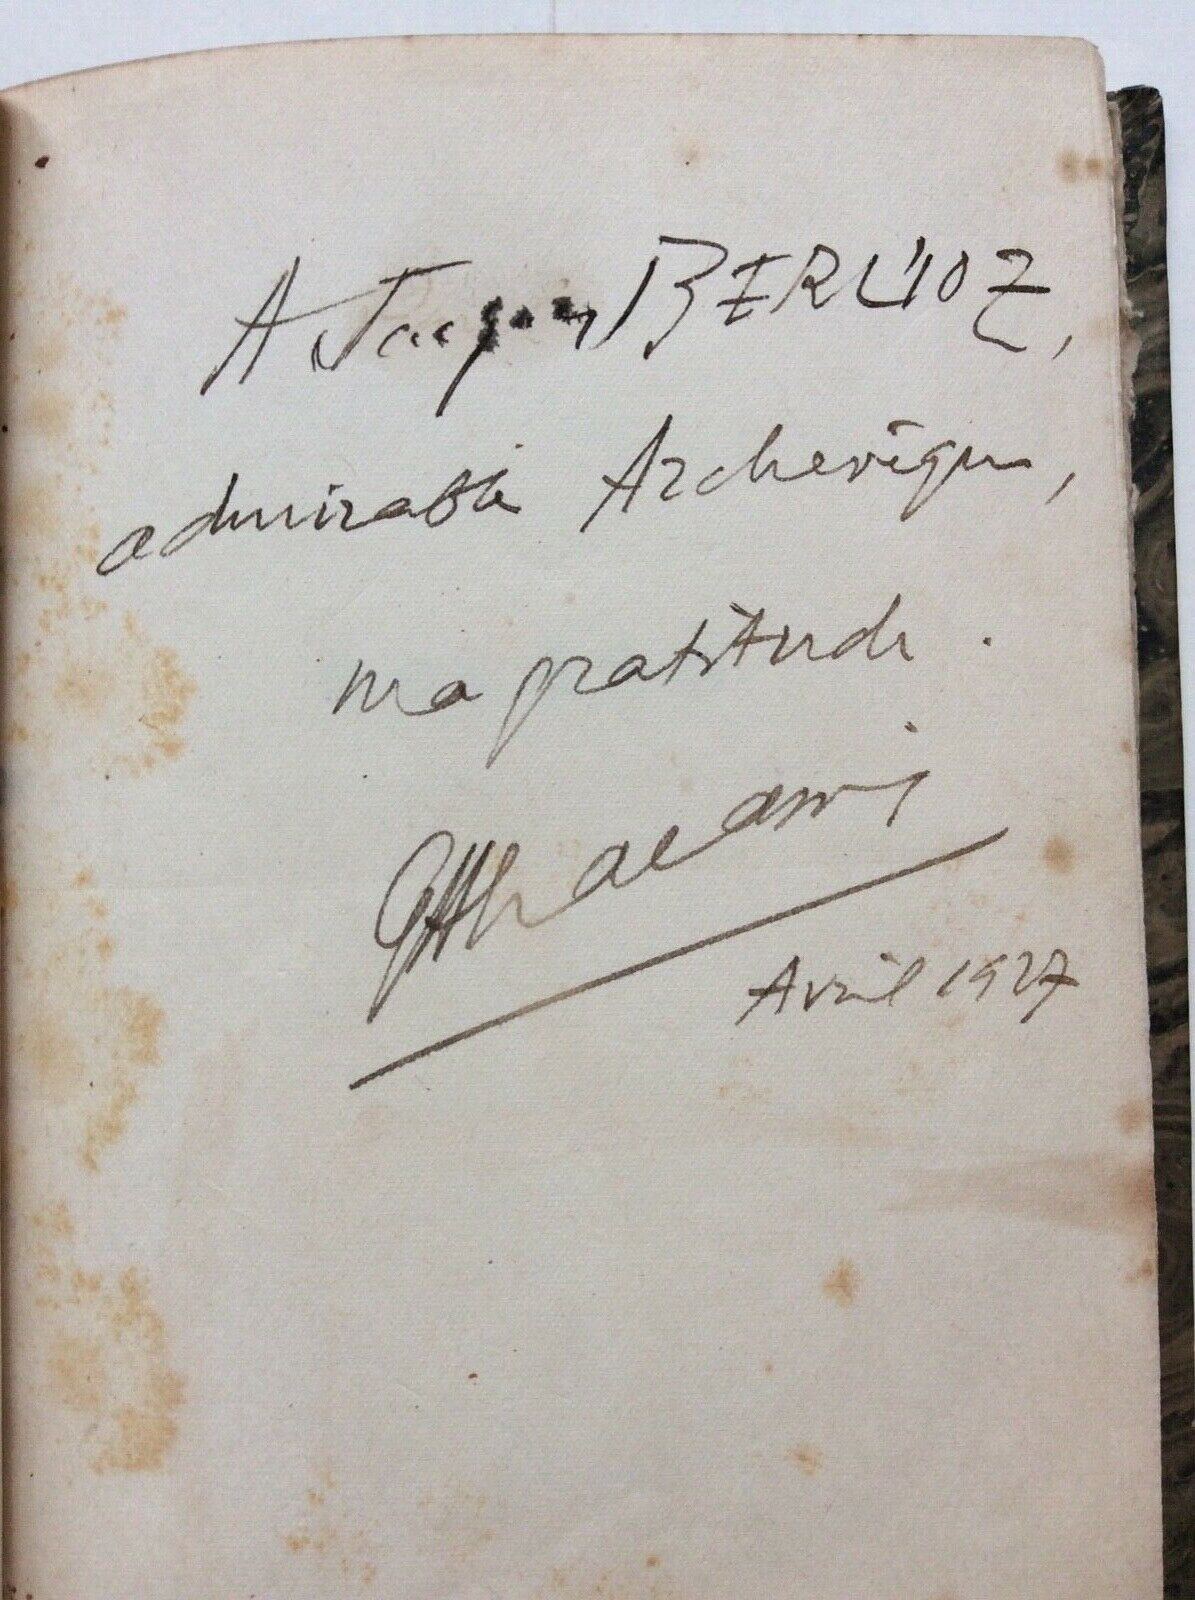 A Jacques BERLIOZ,
admirable Archevêque,
ma gratitude.
Avril 1927